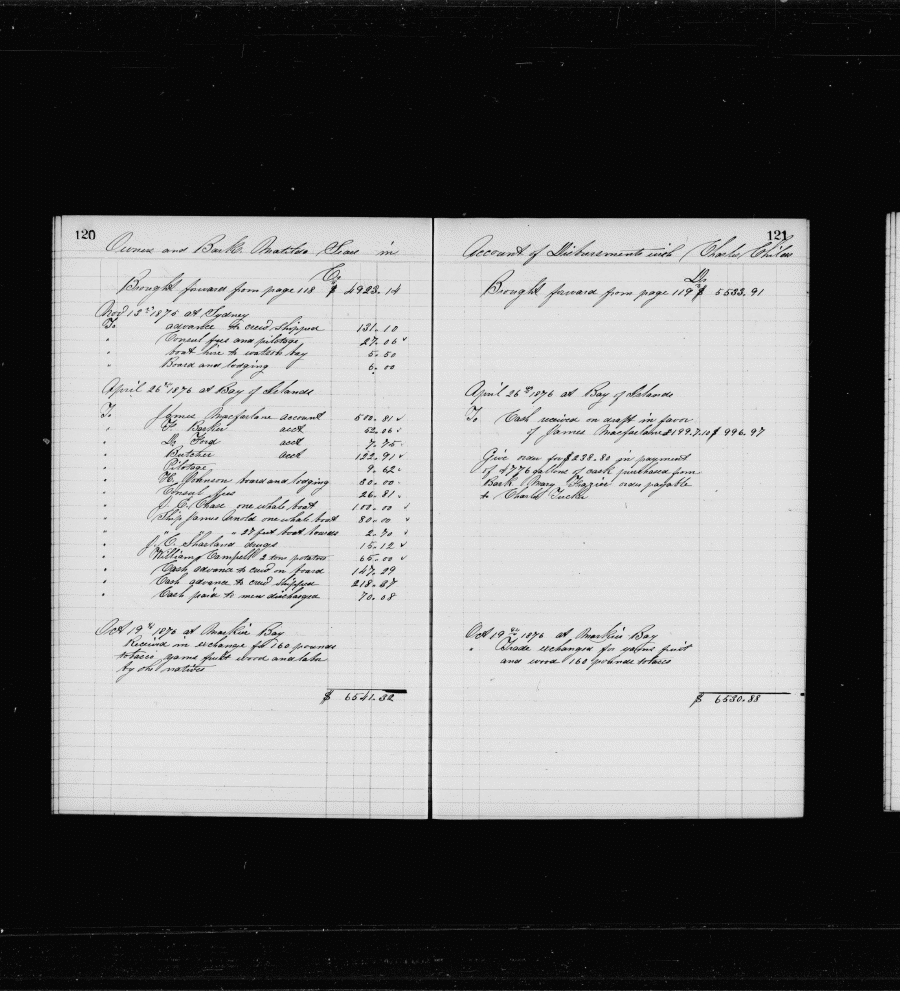 120
Owners and Bark Matilda Sears in
Cr
Brought forward from page 118 $ 4923.14
Nov 13th 1875 at Sydney
To advance to crew shipped 131.10
" Consul fees and pilotage 27.06
" boat hire to watson bay 5.50
" Board and lodging 6.00
April 26th 1876 at Bay of Islands
To James Macfarlane account 500.81
" F. Barker acct 52.06
" D. Ford acct 7.75
" Butcher acct 122.91
" Pilotage 9.62
" H. Johnson board and lodging 80.00
" Consul fees 26.81
" J. C. Chase one whale boat 100.00
" Ship James Arnold one whale boat 80.00
" " " " 27 feet boat boards 2.70
" J. C. Sharland drugs 15.12
" William Campell 2 tons potatoes 65.00
" Cash advance to crew on board 147.29
" Cash advance to crew shipped 218.87
" Cash paid to men discharged 70.08
Oct 19th 1876 at Bay
Received in exchange for 160 pounds
tobacco yams fruit wood and labor
by the natives
$ 6541.32
121
Account of Disbursements with Charles Childs
Dr
Brought forward from page 119 $ 5533.91
April 26th 1876 at Bay of Islands
To Cash received on draft in favor
of James Macfarlane £199.7.10 $ 996.97
Give order for $238.80 in payment
of 4776 gallons of cask purchased from
Bark Mary Frazier order payable
to Charles Tucker
Oct 19th 1876 at Bay
" Trade exchanged for yams fruit
and wood 160 pounds tobacco
$ 6530.88